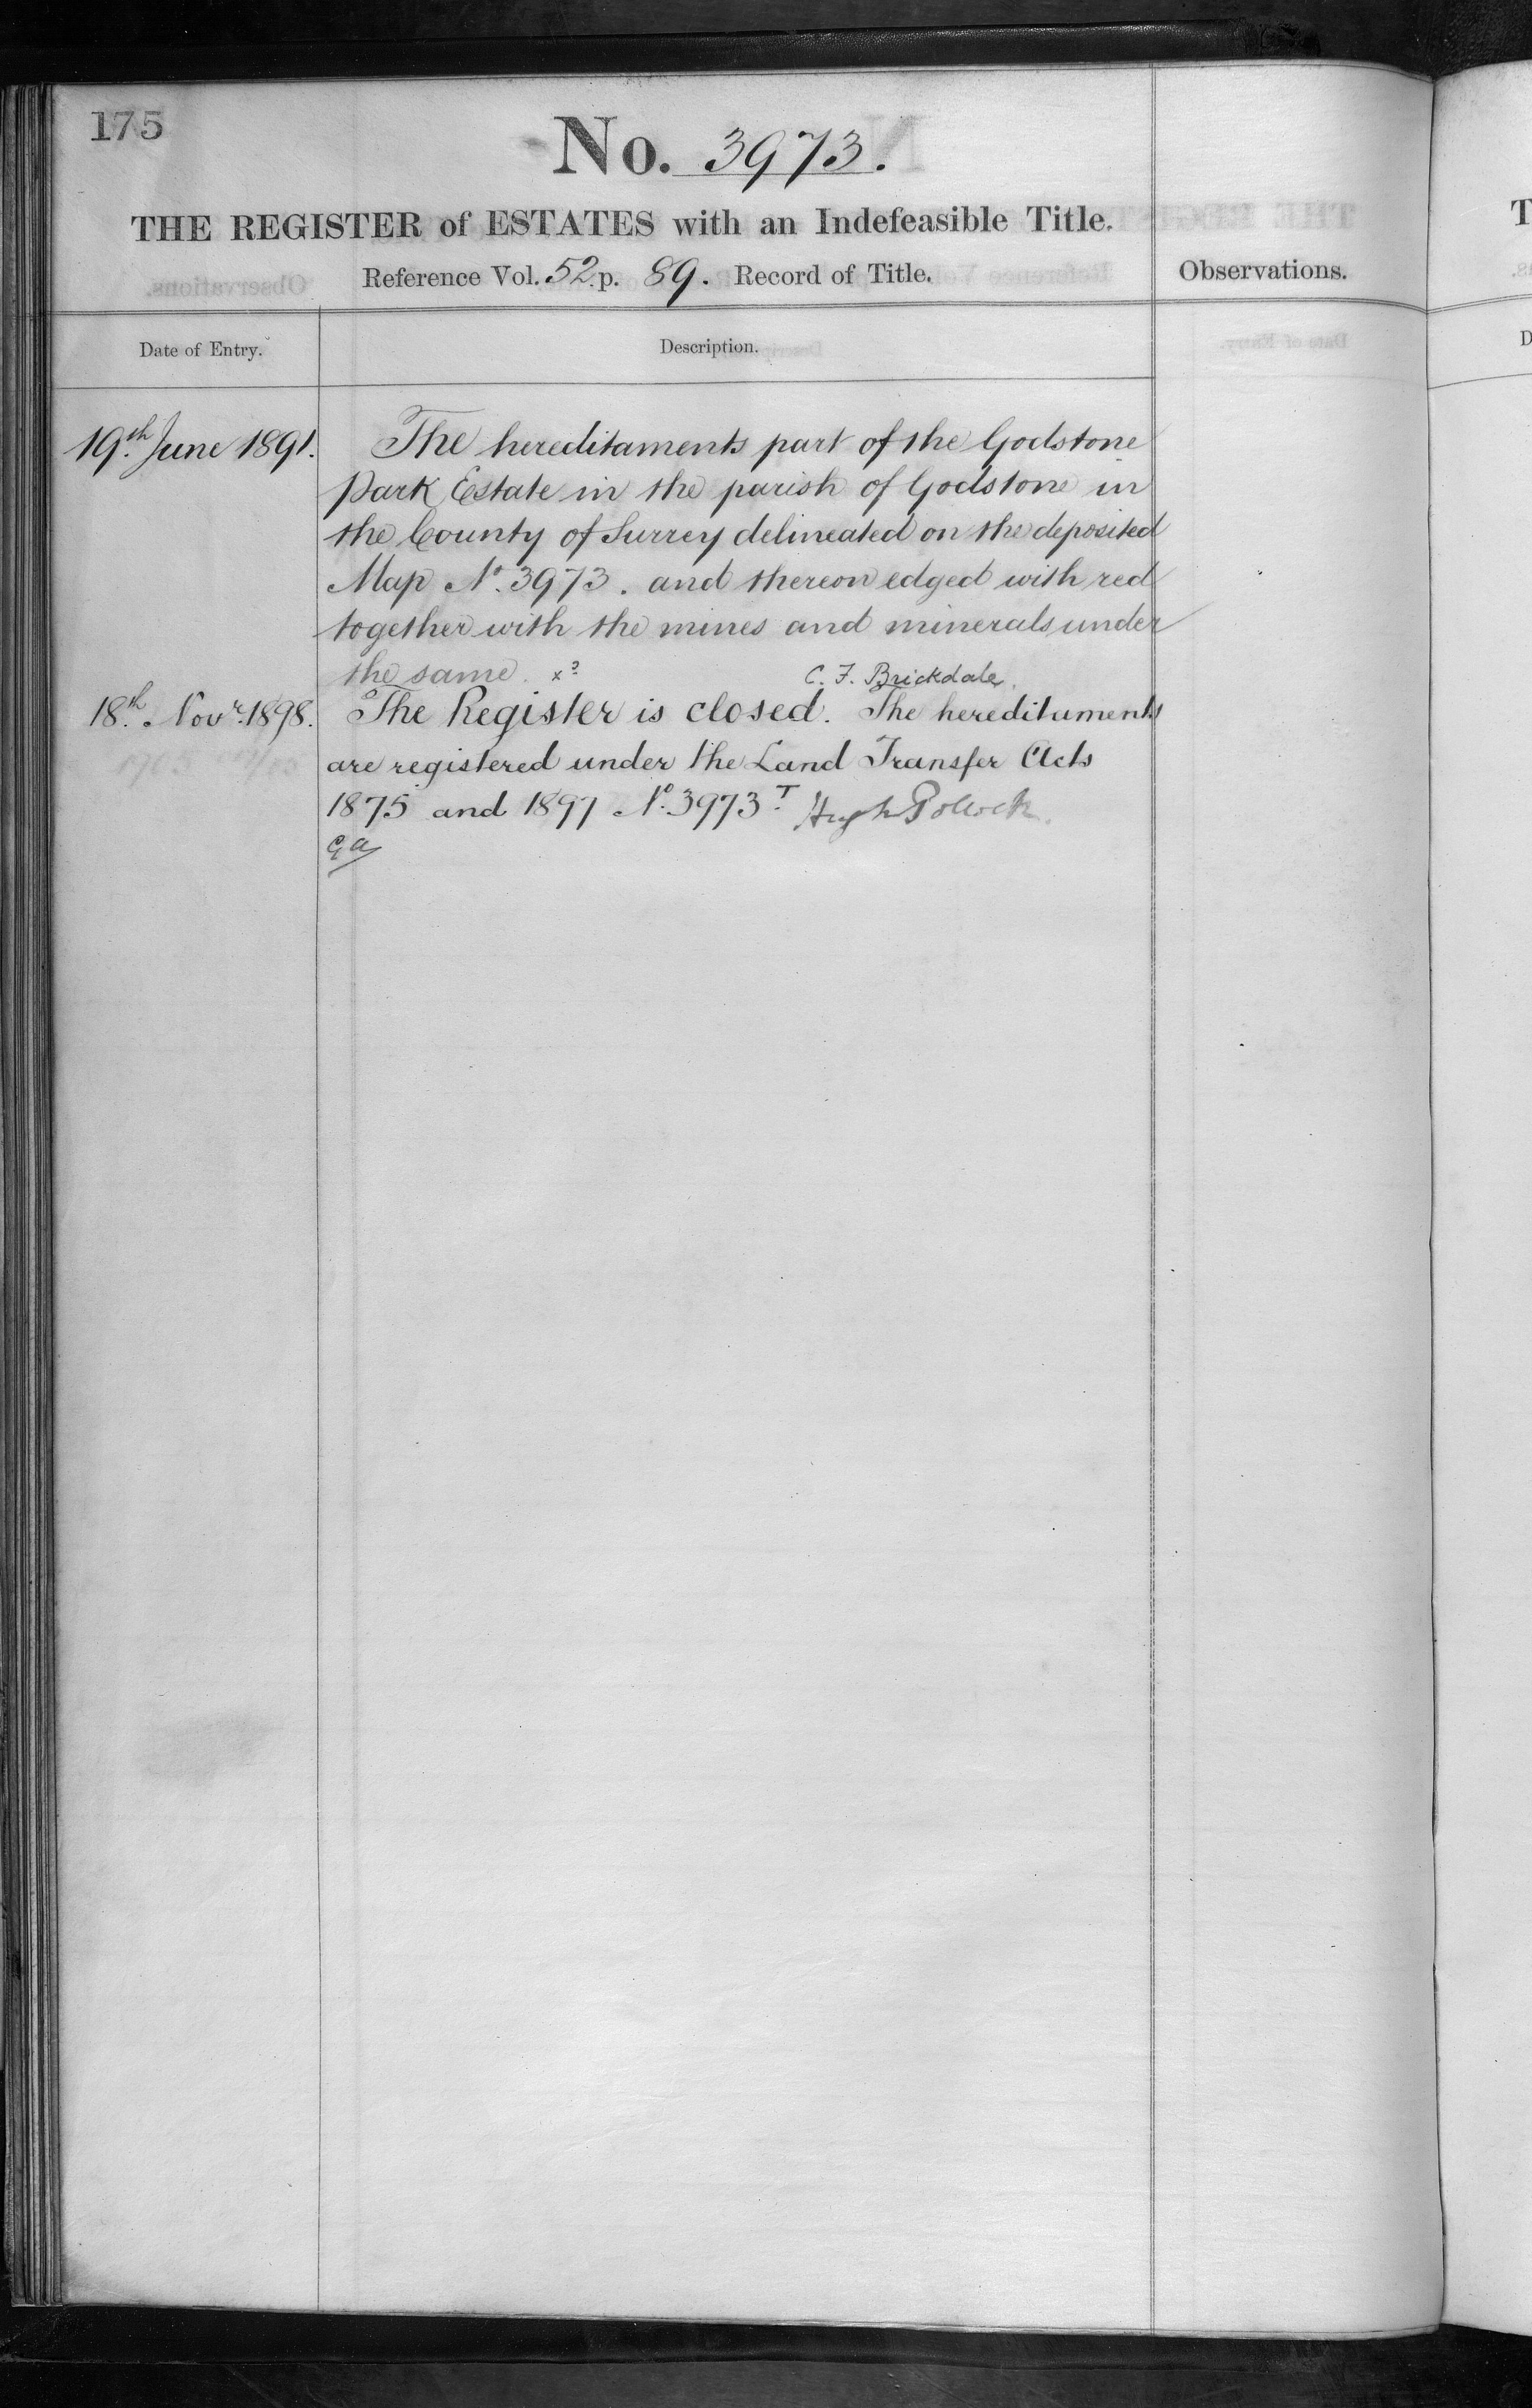 175
No. 3973.
THE REGISTER of ESTATES with an Indefeasible Title.
Reference Vol. 52. p. 89. Record of Title.
Observations.
Date of Entry.
Description.
19.th June 1891.
The hereditaments part of the Godstone
Park Estate in the parish of Godstone in
the County of Surrey delineated on the deposited
Map No. 3973. and thereon edged with red
together with the mines and minerals under
the same. x?
C. F. Brickdale.
18.th Novr. 1898.
The Register is closed. The hereditaments
are registered under the Land Transfer Acts
1875 and 1897 No. 3973T. Hugh Pollock.